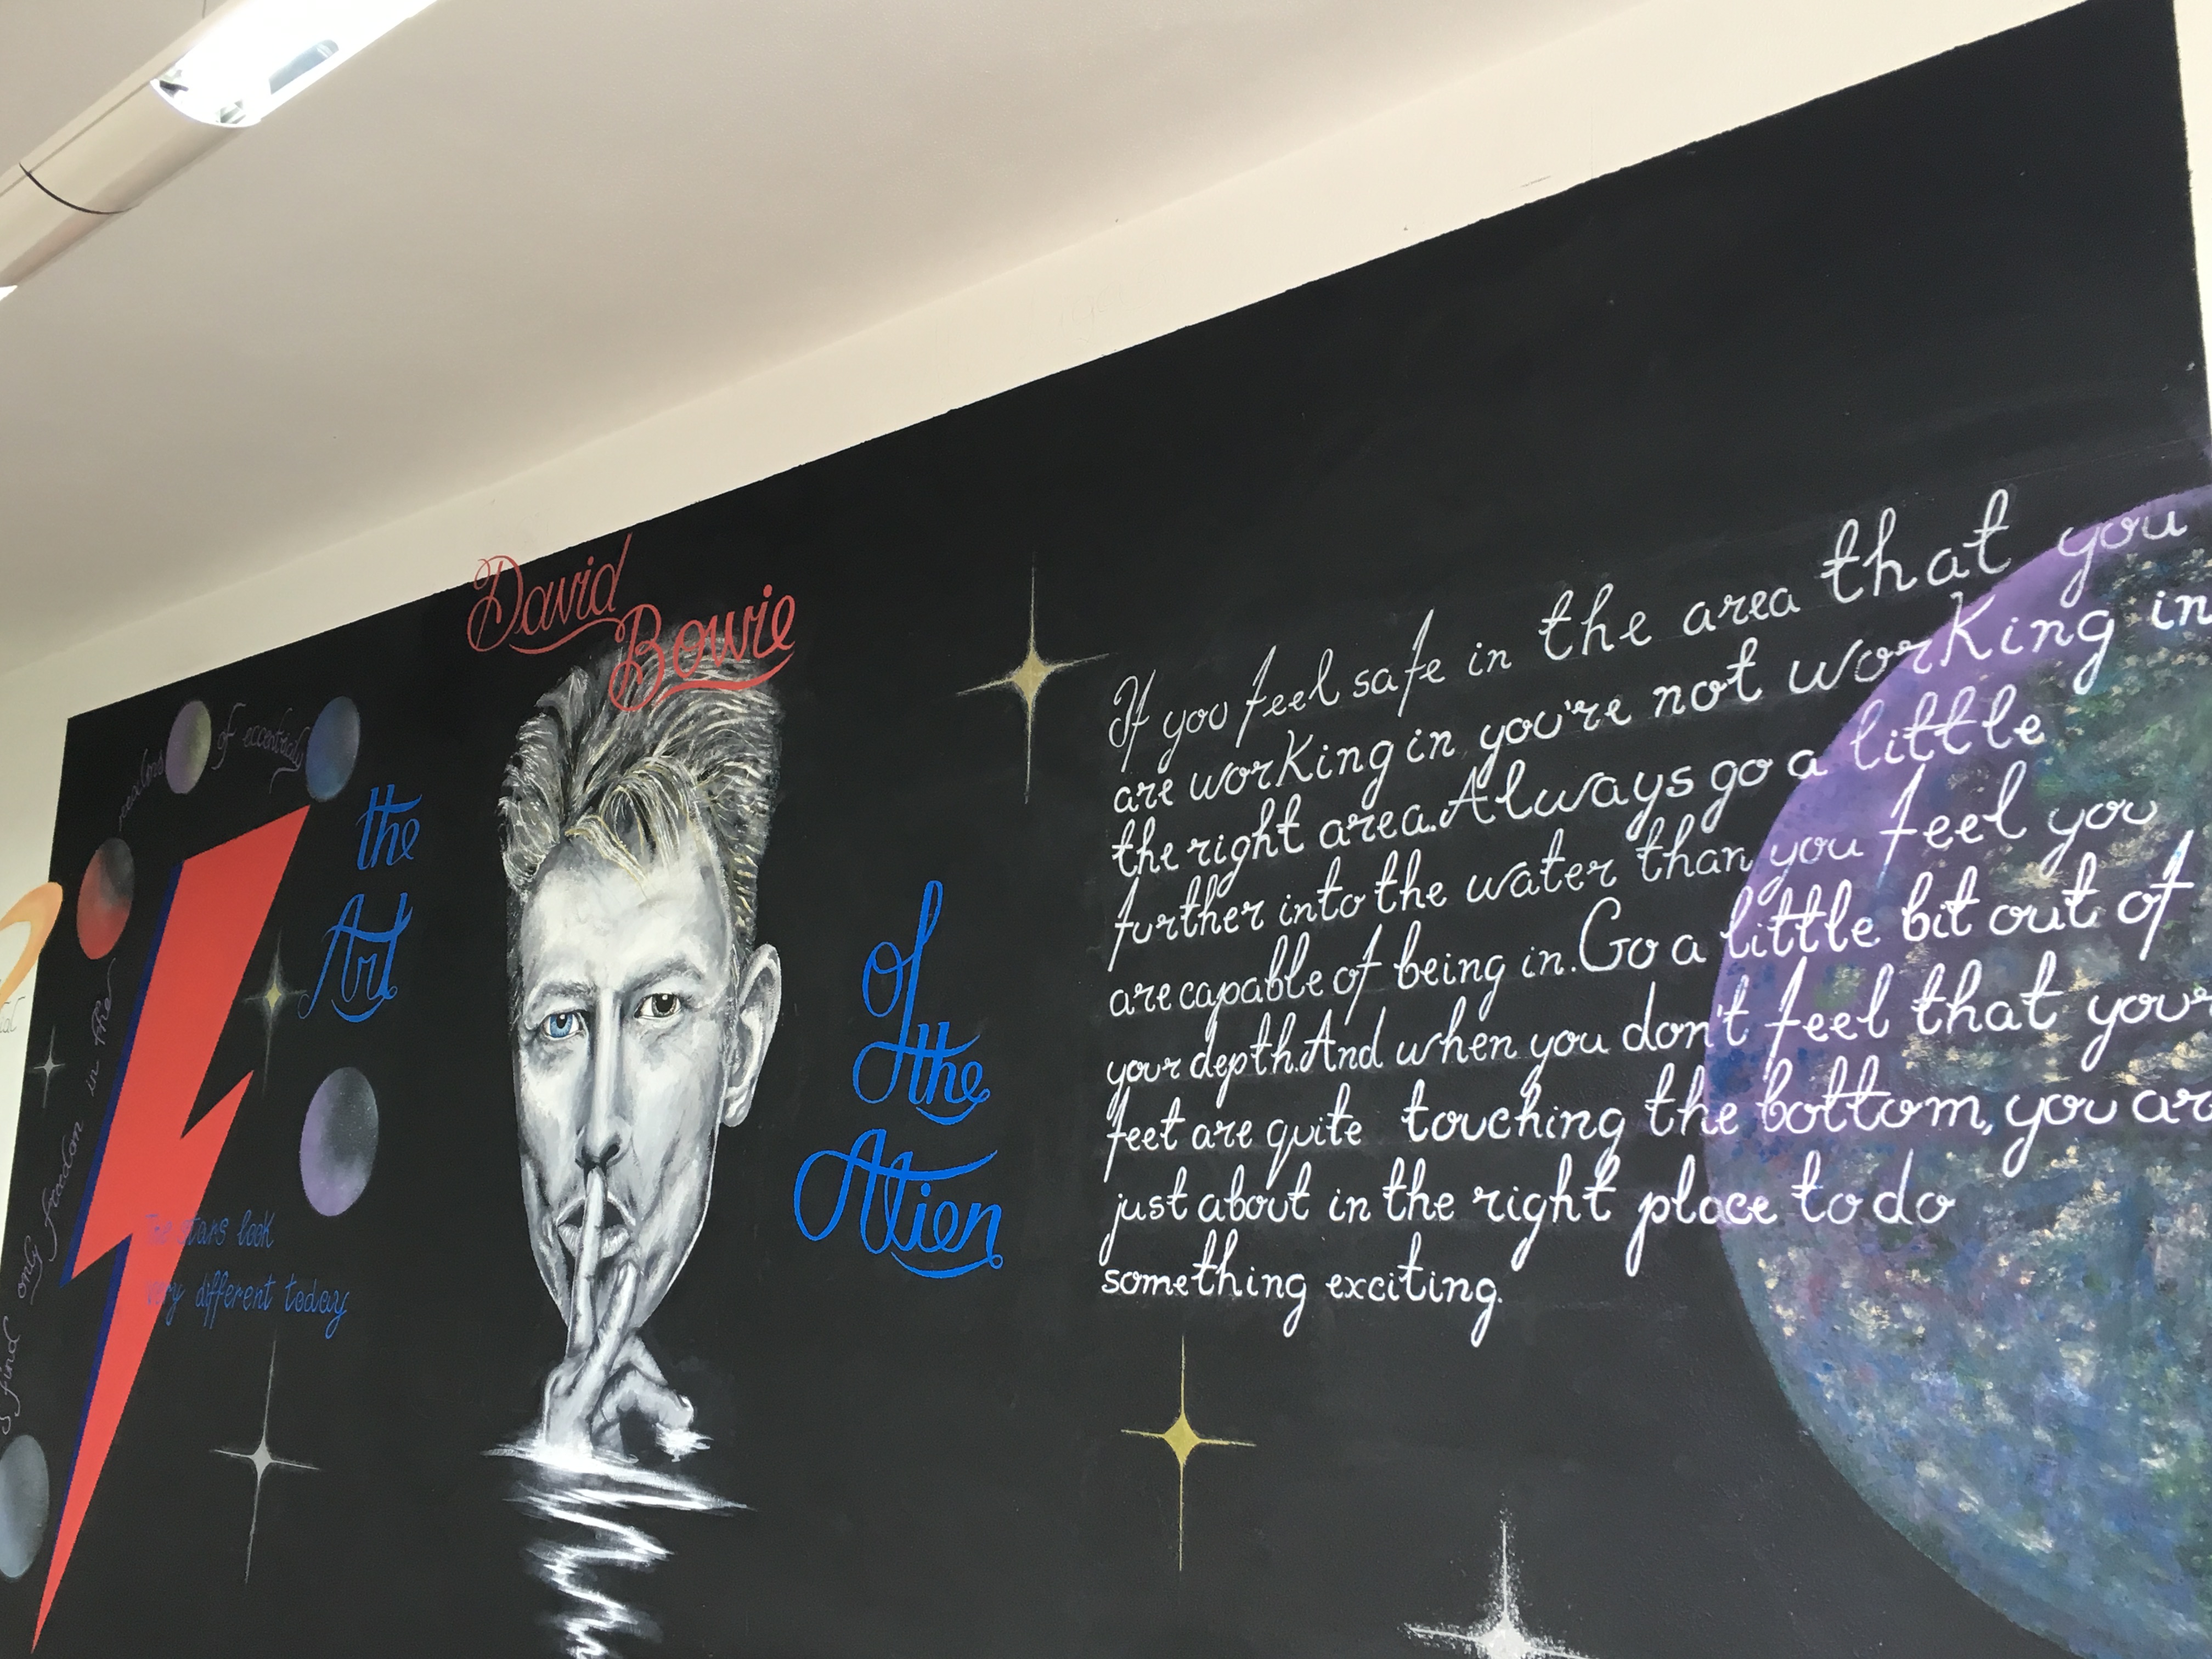 David
Bowie
realms of eccentricity
the
Art
of
the
Alien
find only freedom in the
The stars look
very different today
If you feel safe in the area that you
are working in you're not working in
the right area. Always go a little
further into the water than you feel you
are capable of being in. Go a little bit out of
your depth. And when you don't feel that your
feet are quite touching the bottom, you are
just about in the right place to do
something exciting.